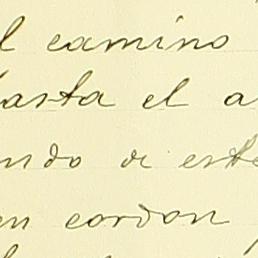 l camino
hasta el a
ndo de este
en cordon